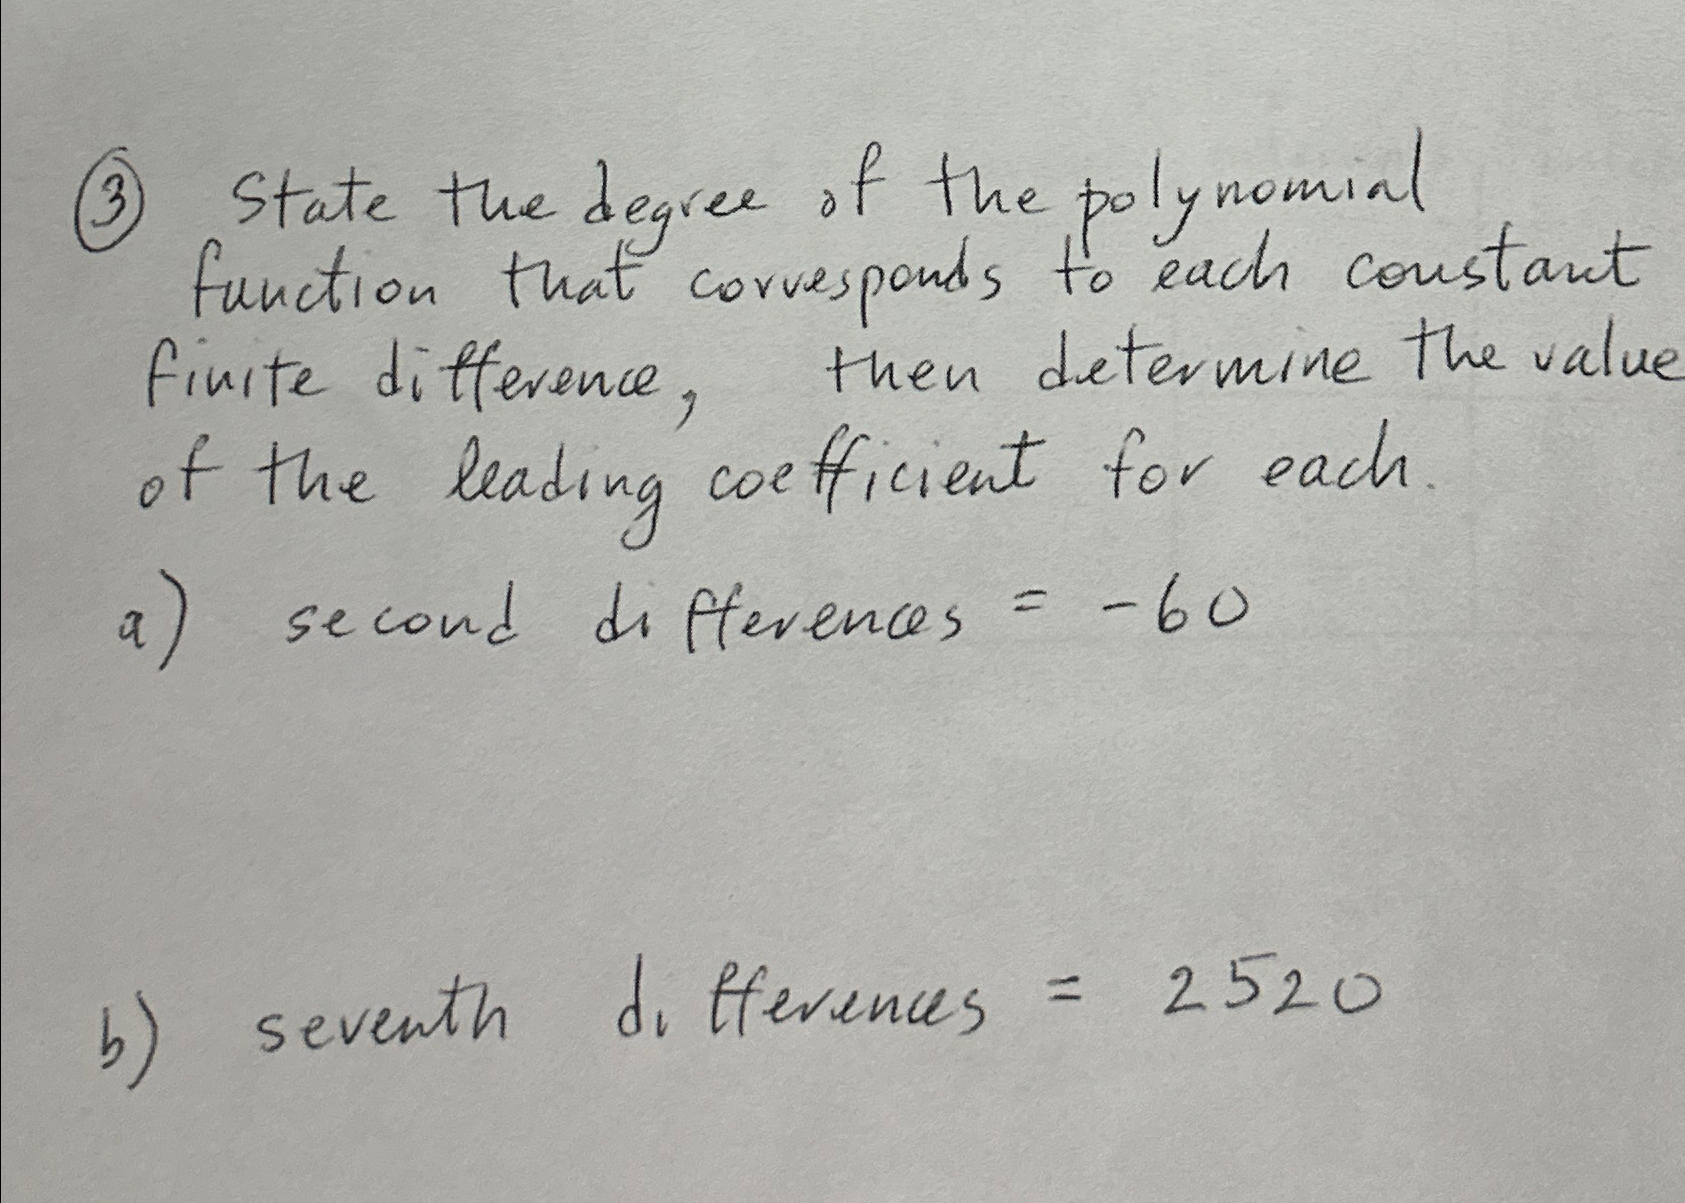 ③ State the degree of the polynomial
function that corresponds to each constant
finite difference, then determine the value
of the leading coefficient for each.
a) second differences = -60
b) seventh differences = 2520